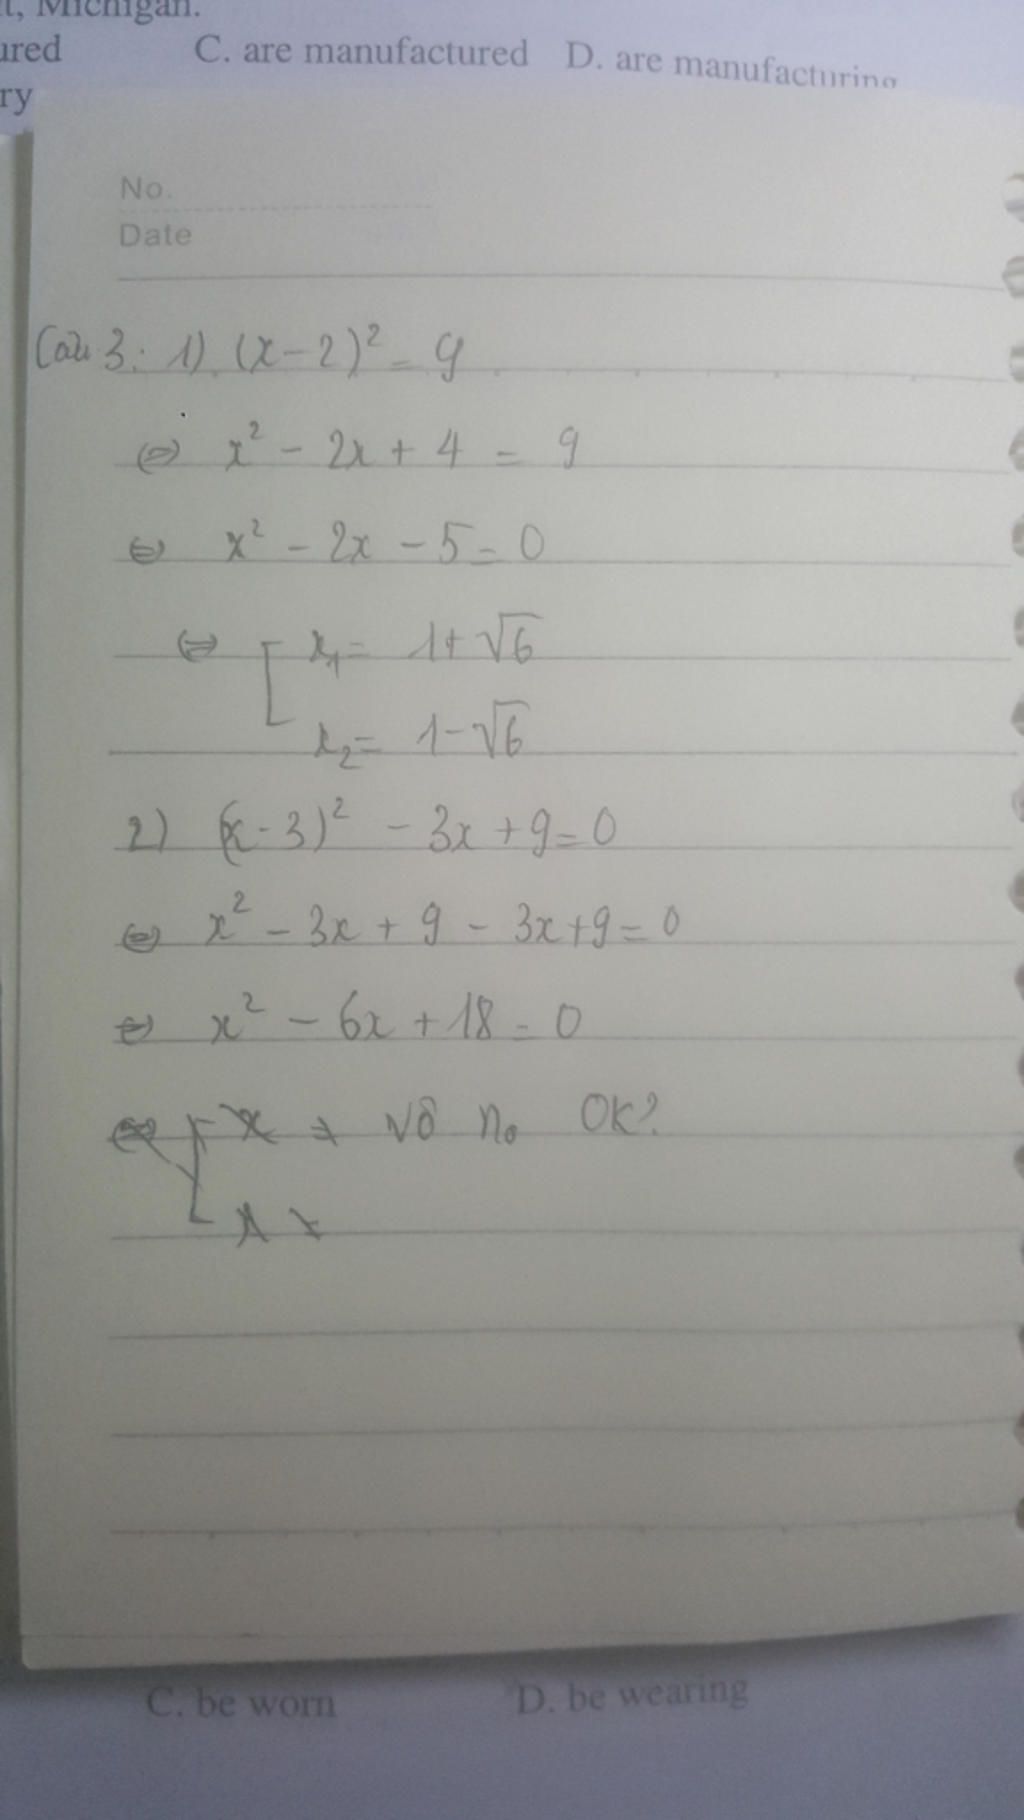 t, Michigan.
ured C. are manufactured D. are manufacturing
ry
No.
Date
Câu 3: 1) (x-2)² = 9
⇔ x² - 2x + 4 = 9
⇔ x² - 2x - 5 = 0
⇔ [ x₁ = 1 + √6
x₂ = 1 - √6
2) (x-3)² - 3x + 9 = 0
⇔ x² - 3x + 9 - 3x + 9 = 0
⇔ x² - 6x + 18 = 0
vô no OK?
C. be worn D. be wearing